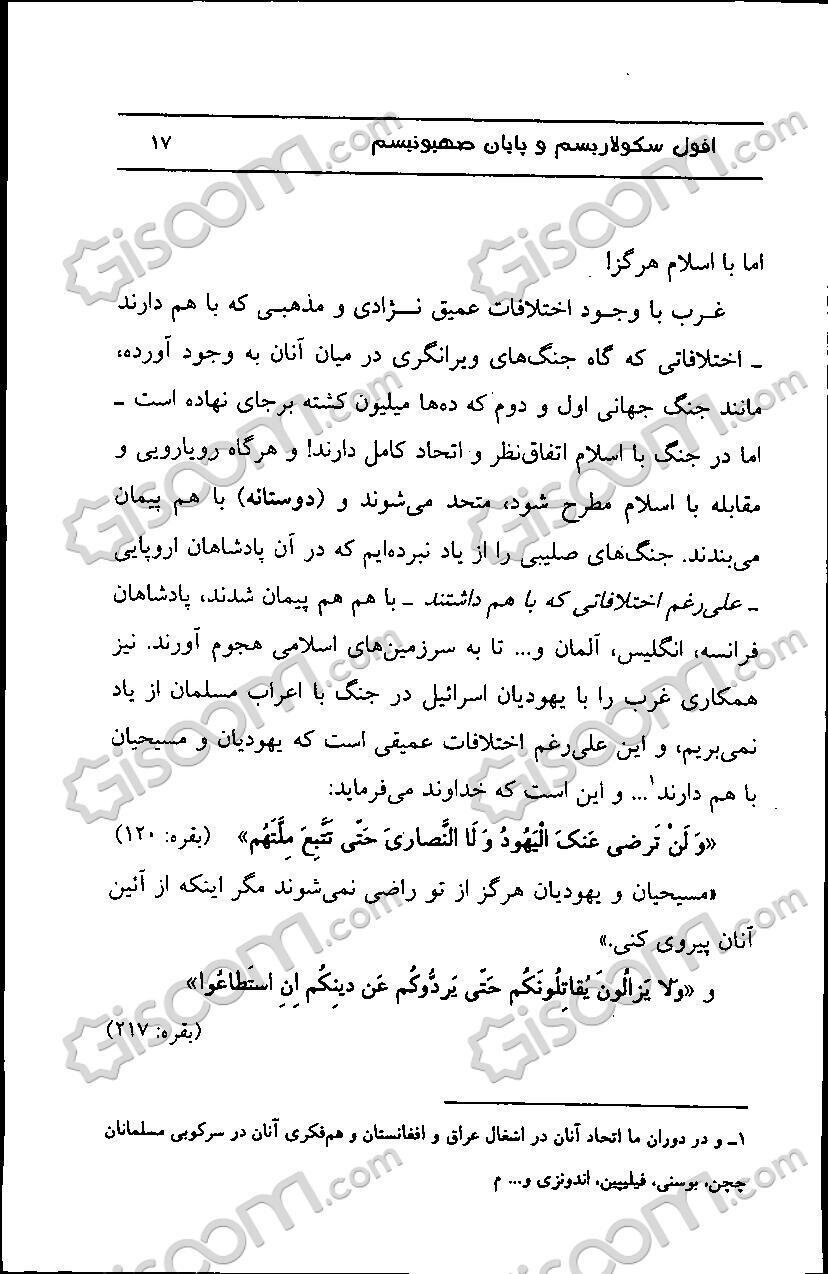 افول سکولاریسم و پایان صهیونیسم ۱۷
اما با اسلام هرگز!
غرب با وجود اختلافات عمیق نژادی و مذهبی که با هم دارند
ـ اختلافاتی که گاه جنگ‌های ویرانگری در میان آنان به وجود آورده،
مانند جنگ جهانی اول و دوم که ده‌ها میلیون کشته برجای نهاده است ـ
اما در جنگ با اسلام اتفاق‌نظر و اتحاد کامل دارند! و هرگاه رویارویی و
مقابله با اسلام مطرح شود، متحد می‌شوند و (دوستانه) با هم پیمان
می‌بندند. جنگ‌های صلیبی را از یاد نبرده‌ایم که در آن پادشاهان اروپایی
ـ علی‌رغم اختلافاتی که با هم داشتند ـ با هم هم پیمان شدند، پادشاهان
فرانسه، انگلیس، آلمان و... تا به سرزمین‌های اسلامی هجوم آورند. نیز
همکاری غرب را با یهودیان اسرائیل در جنگ با اعراب مسلمان از یاد
نمی‌بریم، و این علی‌رغم اختلافات عمیقی است که یهودیان و مسیحیان
با هم دارند۱... و این است که خداوند می‌فرماید:
«وَ لَنْ تَرضی عَنکَ الْیَهُودُ وَ لَا النَّصاریَ حَتّی تَتَّبِعَ مِلَّتَهُم» (بقره: ۱۲۰)
«مسیحیان و یهودیان هرگز از تو راضی نمی‌شوند مگر اینکه از آئین
آنان پیروی کنی.»
و «وَلا یَزالُونَ یُقاتِلُونَکُم حَتّی یَردُّوکُم عَن دینِکُم اِنِ استَطاعُوا»
(بقره: ۲۱۷)
۱ـ و در دوران ما اتحاد آنان در اشغال عراق و افغانستان و هم‌فکری آنان در سرکوبی مسلمانان
چچن، بوسنی، فیلیپین، اندونزی و... م
Gisoom.com
Gisoom.com
Gisoom.com
Gisoom.com
Gisoom.com
Gisoom.com
Gisoom.com
Gisoom.com
Gisoom.com
Gisoom.com